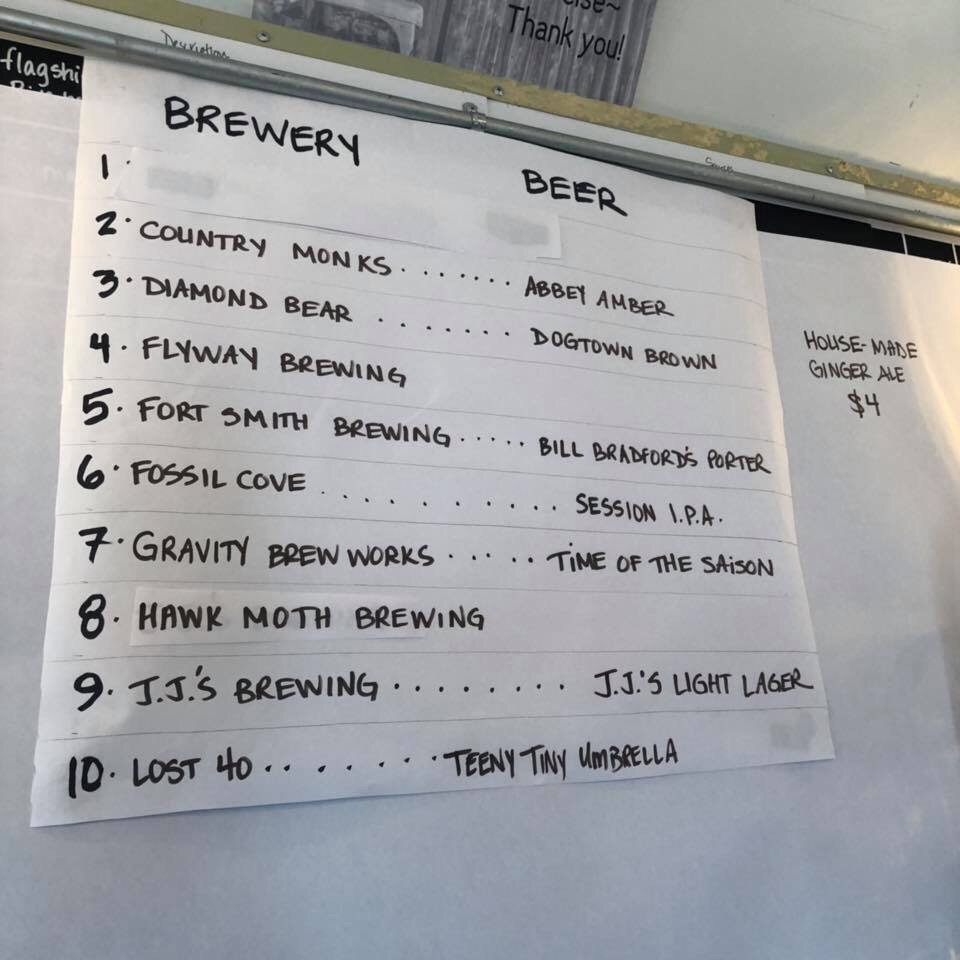 Thank you!
Description
flagshi
BREWERY BEER
1.
2. COUNTRY MONKS ....... ABBEY AMBER
3. DIAMOND BEAR ....... DOGTOWN BROWN
4. FLYWAY BREWING
5. FORT SMITH BREWING ..... BILL BRADFORD'S PORTER
6. FOSSIL COVE .......... SESSION I.P.A.
7. GRAVITY BREW WORKS ..... TIME OF THE SAISON
8. HAWK MOTH BREWING
9. J.J.'S BREWING ........ J.J.'S LIGHT LAGER
10. LOST 40 ....... TEENY TINY UMBRELLA
HOUSE-MADE
GINGER ALE
$4